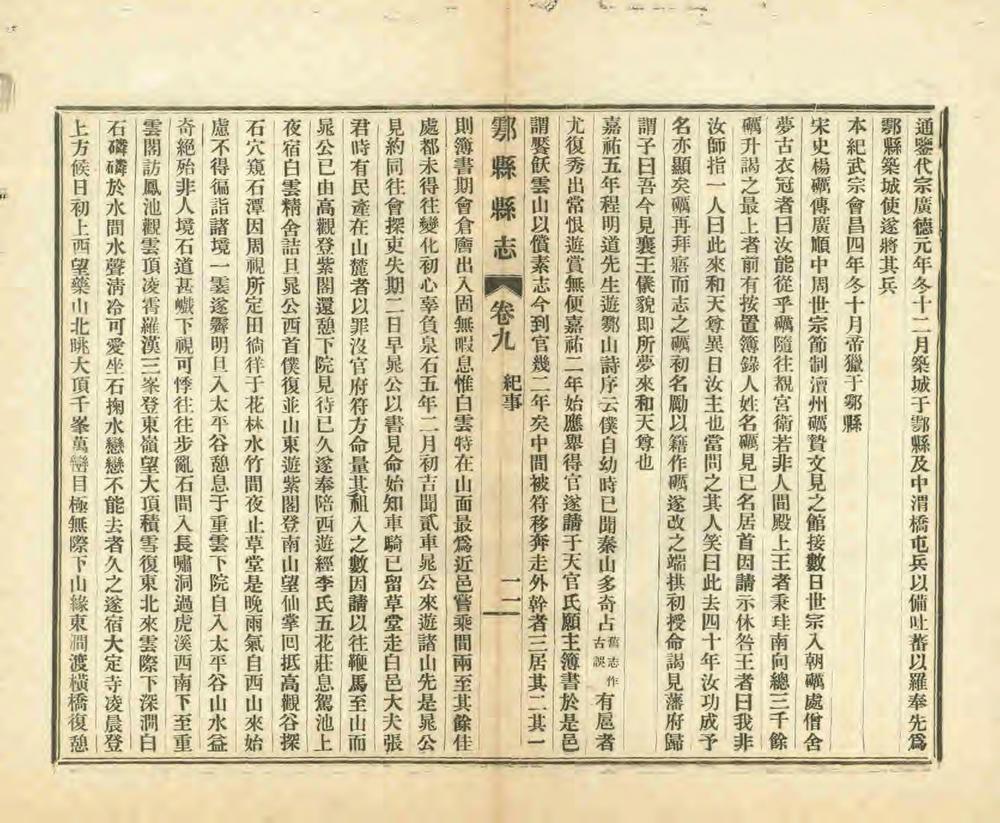 通鑒代宗廣德元年冬十二月築城于鄠縣及中渭橋屯兵以備吐蕃以羅奉先爲
鄠縣築城使遂將其兵
本紀武宗會昌四年冬十月帝獵于鄠縣
宋史楊礪傳廣順中周世宗節制澶州礪贄文見之館接數日世宗入朝礪處僧舍
夢古衣冠者曰汝能從乎礪隨往覩宮衛若非人間殿上王者秉珪南向總三千餘
礪升謁之最上者前有按置簿錄人姓名礪見已名居首因請示休咎王者曰我非
汝師指一人曰此來和天尊異日汝主也當問之其人笑曰此去四十年汝功成予
名亦顯矣礪再拜寤而志之礪初名勵以籍作礪遂改之端拱初授命謁見藩府歸
謂子曰吾今見襄王儀貌即所夢來和天尊也
嘉祐五年程明道先生遊鄠山詩序云僕自幼時已聞秦山多奇占舊志作古誤有扈者
尤復秀出常恨遊賞無便嘉祐二年始應舉得官遂請于天官氏願主簿書於是邑
謂饜飫雲山以償素志今到官幾二年矣中間被符移奔走外幹者三居其二其一
鄠縣縣志 卷九 紀事 一一
則簿書期會倉廥出入固無暇息惟白雲特在山面最爲近邑嘗乘間兩至其餘佳
處都未得往變化初心辜負泉石五年二月初吉聞貳車晁公來遊諸山先是晁公
見約同往會探吏失期二日早晁公以書見命始知車騎已留草堂走白邑大夫張
君時有民產在山麓者以罪沒官府符方命量其租入之數因請以往鞭馬至山而
晁公已由高觀登紫閣還憩下院見待已久遂奉陪西遊經李氏五花莊息駕池上
夜宿白雲精舍詰旦晁公西首僕復並山東遊紫閣登南山望仙掌回抵高觀谷探
石穴窺石潭因周視所定田徜徉于花林水竹間夜止草堂是晚雨氣自西山來始
慮不得徧詣諸境一霎遂霽明旦入太平谷憩息于重雲下院自入太平谷山水益
奇絕殆非人境石道甚巇下視可悸往往步亂石間入長嘯洞過虎溪西南下至重
雲閣訪鳳池觀雲頂凌霄羅漢三峯登東嶺望大頂積雪復東北來雲際下深澗白
石磷磷於水間水聲清泠可愛坐石掬水戀戀不能去者久之遂宿大定寺凌晨登
上方候日初上西望藥山北眺大頂千峯萬巒目極無際下山緣東澗渡橫橋復憩